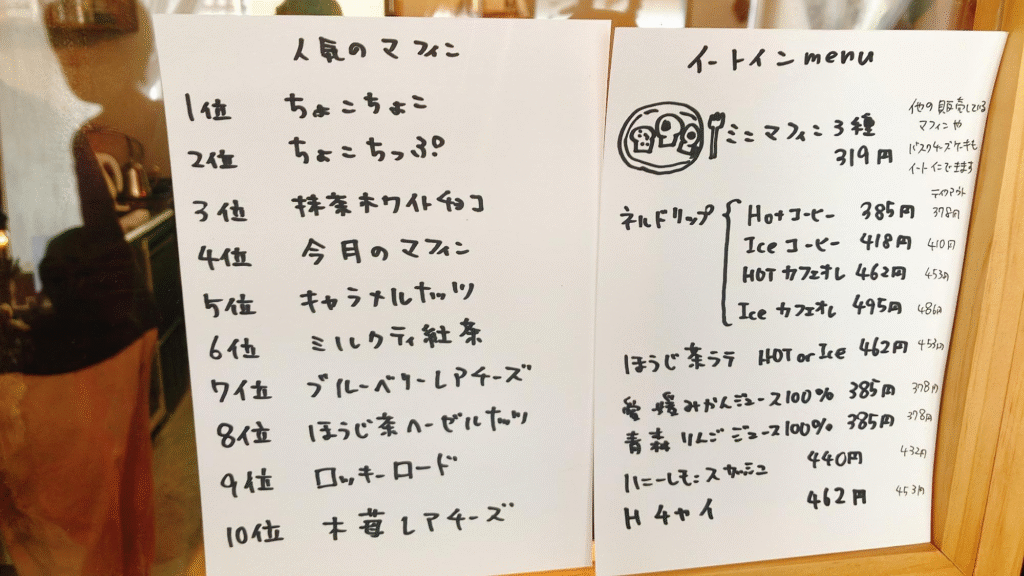 人気のマフィン
1位 ちょこちょこ
2位 ちょこちっぷ
3位 抹茶ホワイトチョコ
4位 今月のマフィン
5位 キャラメルナッツ
6位 ミルクティ紅茶
7位 ブルーベリーレアチーズ
8位 ほうじ茶ヘーゼルナッツ
9位 ロッキーロード
10位 木苺レアチーズ
イートインmenu
ミニマフィン3種
319円
他の販売している
マフィンや
バスクチーズケーキも
イートインできまる
テイクアウト
ネルドリップ
Hotコーヒー 385円 378円
Iceコーヒー 418円 410円
HOTカフェオレ 462円 453円
Iceカフェオレ 495円 486円
ほうじ茶ラテ HOT or Ice 462円 453円
愛媛みかんジュース100% 385円 378円
青森りんごジュース100% 385円 378円
ハニーレモンスカッシュ 440円 432円
H チャイ 462円 453円